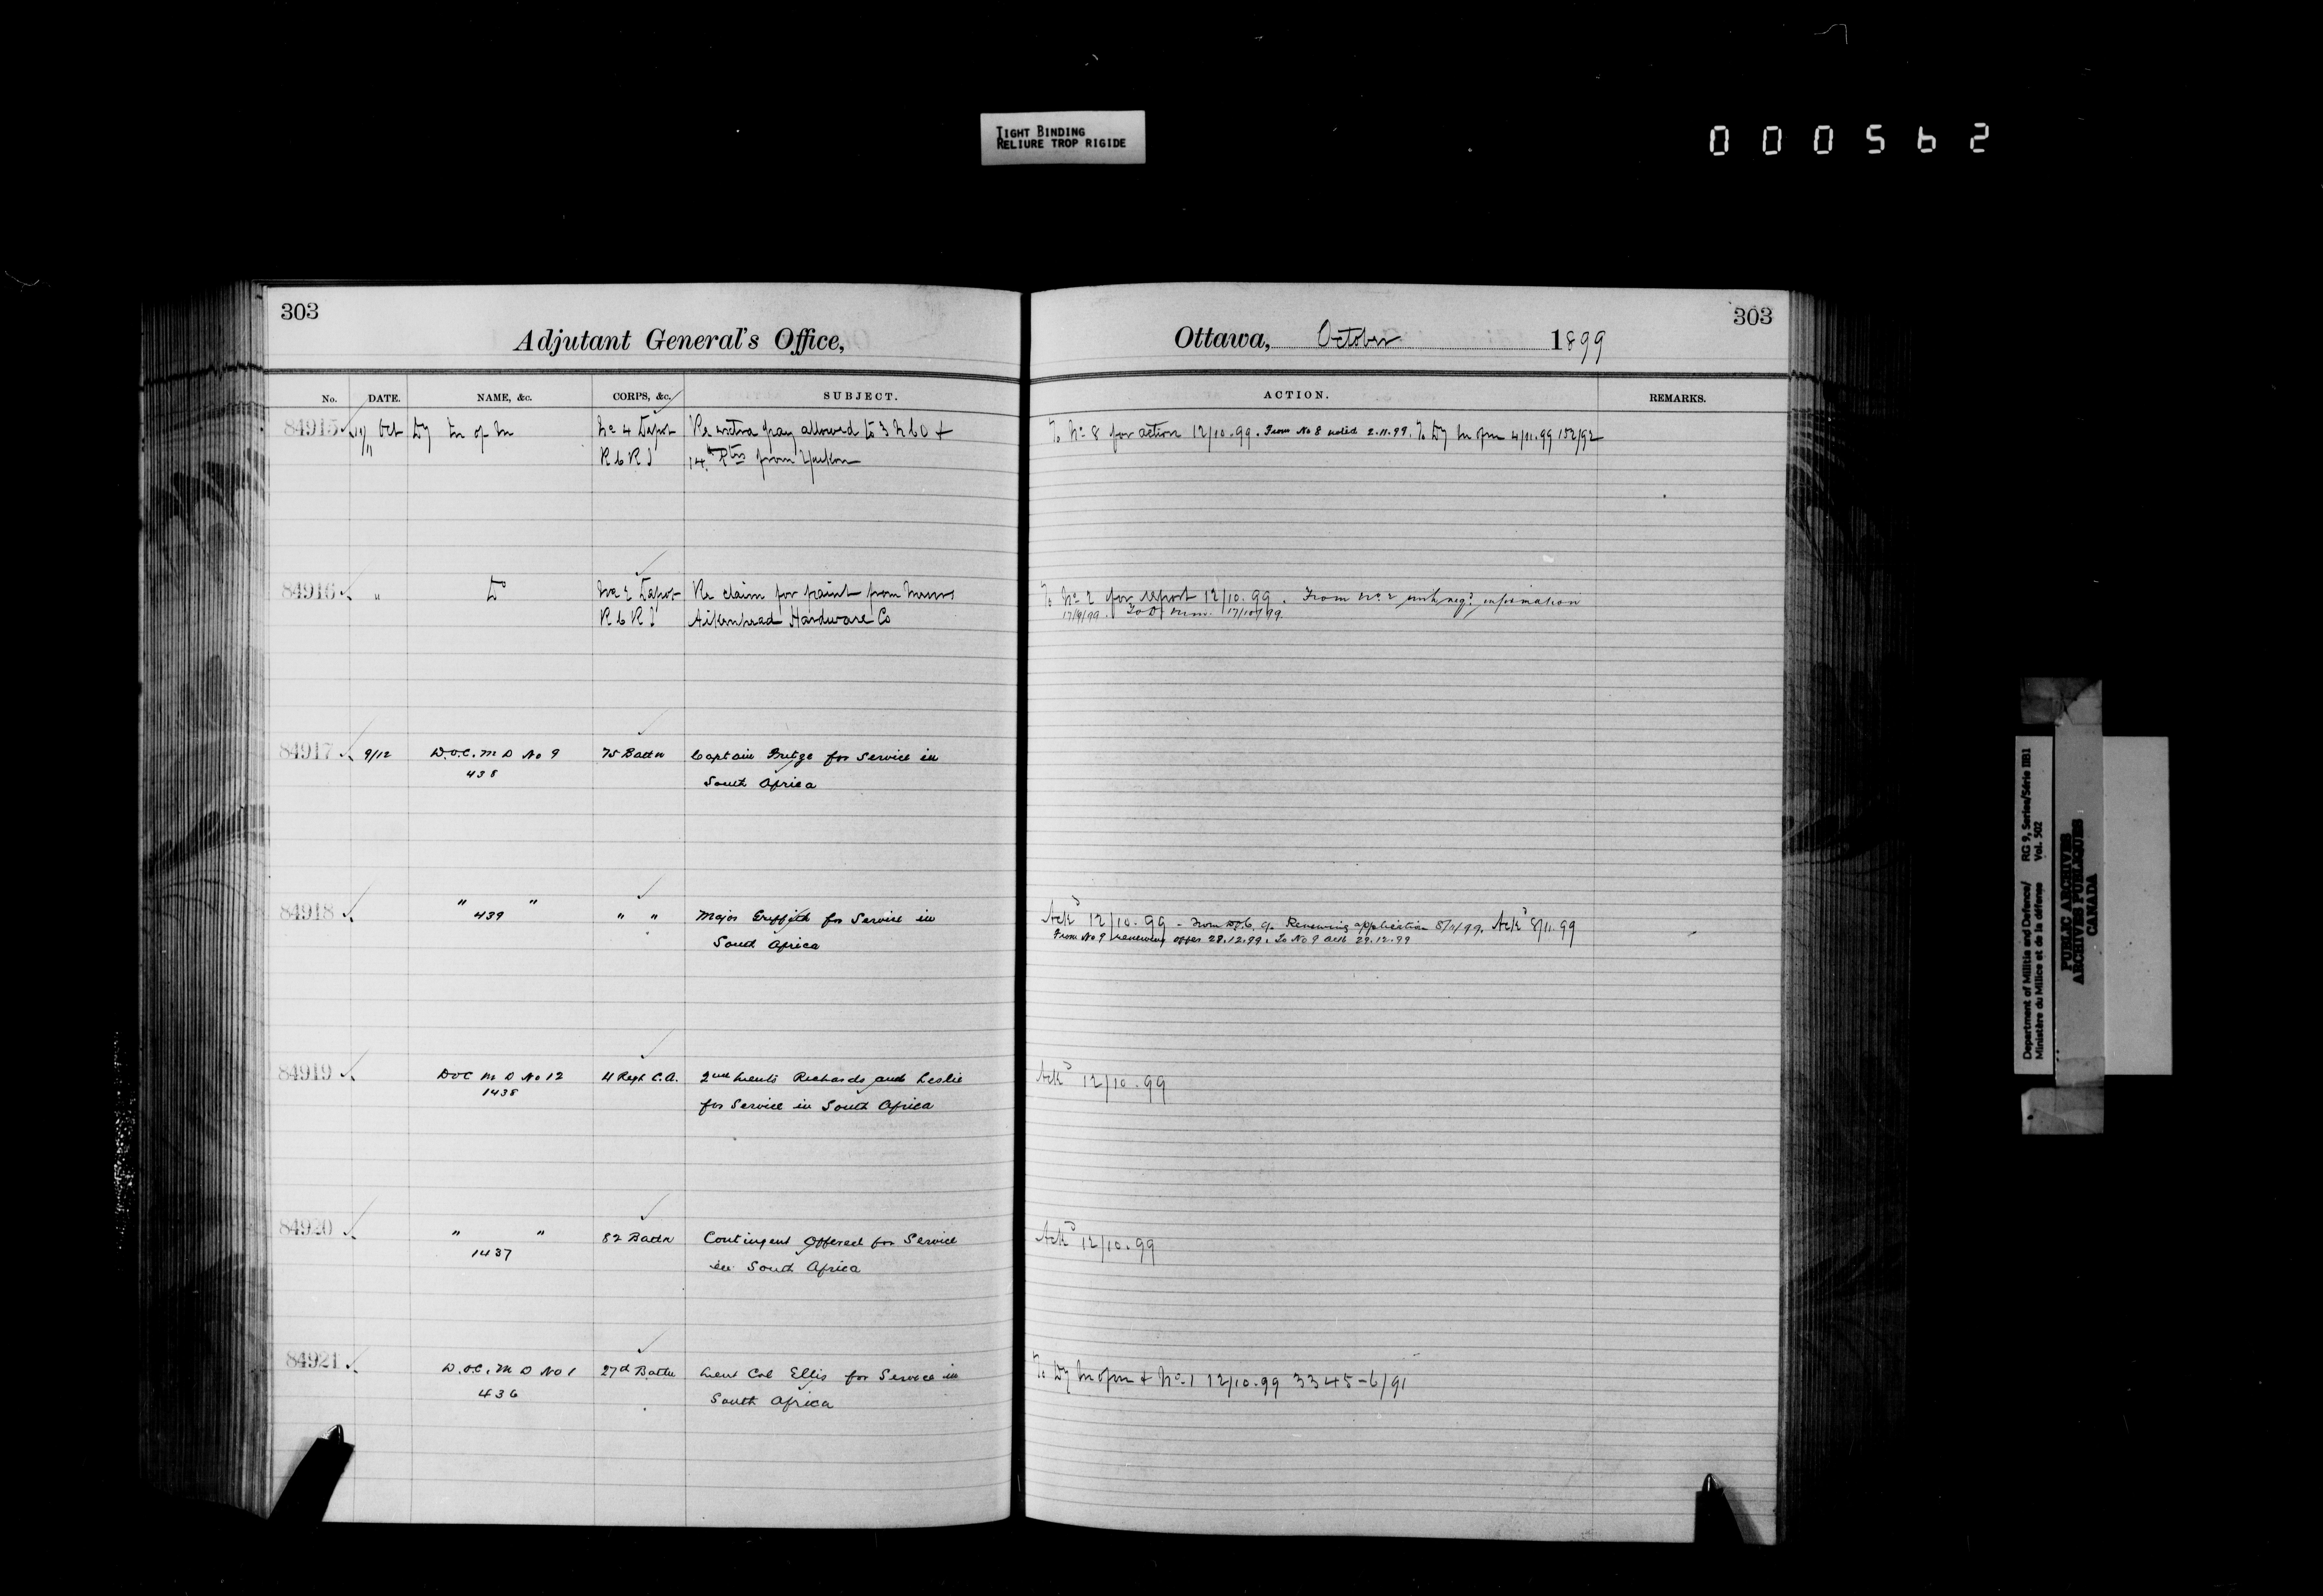 TIGHT BINDING
RELIURE TROP RIGIDE
000562
303
Adjutant General's Office,
No. DATE. NAME, &c. CORPS, &c. SUBJECT.
84915 11/11 Oct Dy M of M No 4 Depot Re extra pay allowed to 3 N C O +
R C R I 14 Ptes from Yukon
84916 " Do No 2 Depot Re claim for paint from Messrs
R C R I Aikenhead Hardware Co
84917 9/12 D.O.C. M D No 9 75 Battn Captain for Service in
438 South Africa
84918 " " " " Major Griffith for Service in
439 South Africa
84919 DOC M D No 12 4 Regt C.A. 2nd Lieuts Richards and Leslie
1438 for Service in South Africa
84920 " " 82 Battn Contingent Offered for Service
1437 in South Africa
84921 D.O.C. M D No 1 27th Battn Lieut Col Ellis for Service in
436 South Africa
303
Ottawa, October 1899
ACTION. REMARKS.
To No 8 for action 12/10.99. From No 8 noted 2.11.99. To Dy M of M 4/11.99 152/92
To No 2 for report 12/10.99. From No. 2 with reqd information
17/9/99. To D 17/10/99.
Ackd 12/10.99 - From DOC 9. Renewing application 8/11/99. Ackd 8/11.99
From No 9 renewing offer 28.12.99. To No 9 ack 29.12.99
Ackd 12/10.99
Ackd 12/10.99
To Dy M of M + No. 1 12/10.99 3345-6/91
Department of Militia and Defence/ RG 9, Series/Série IIB1
Ministère du Milice et de la défense Vol. 502
PUBLIC ARCHIVES
ARCHIVES PUBLIQUES
CANADA